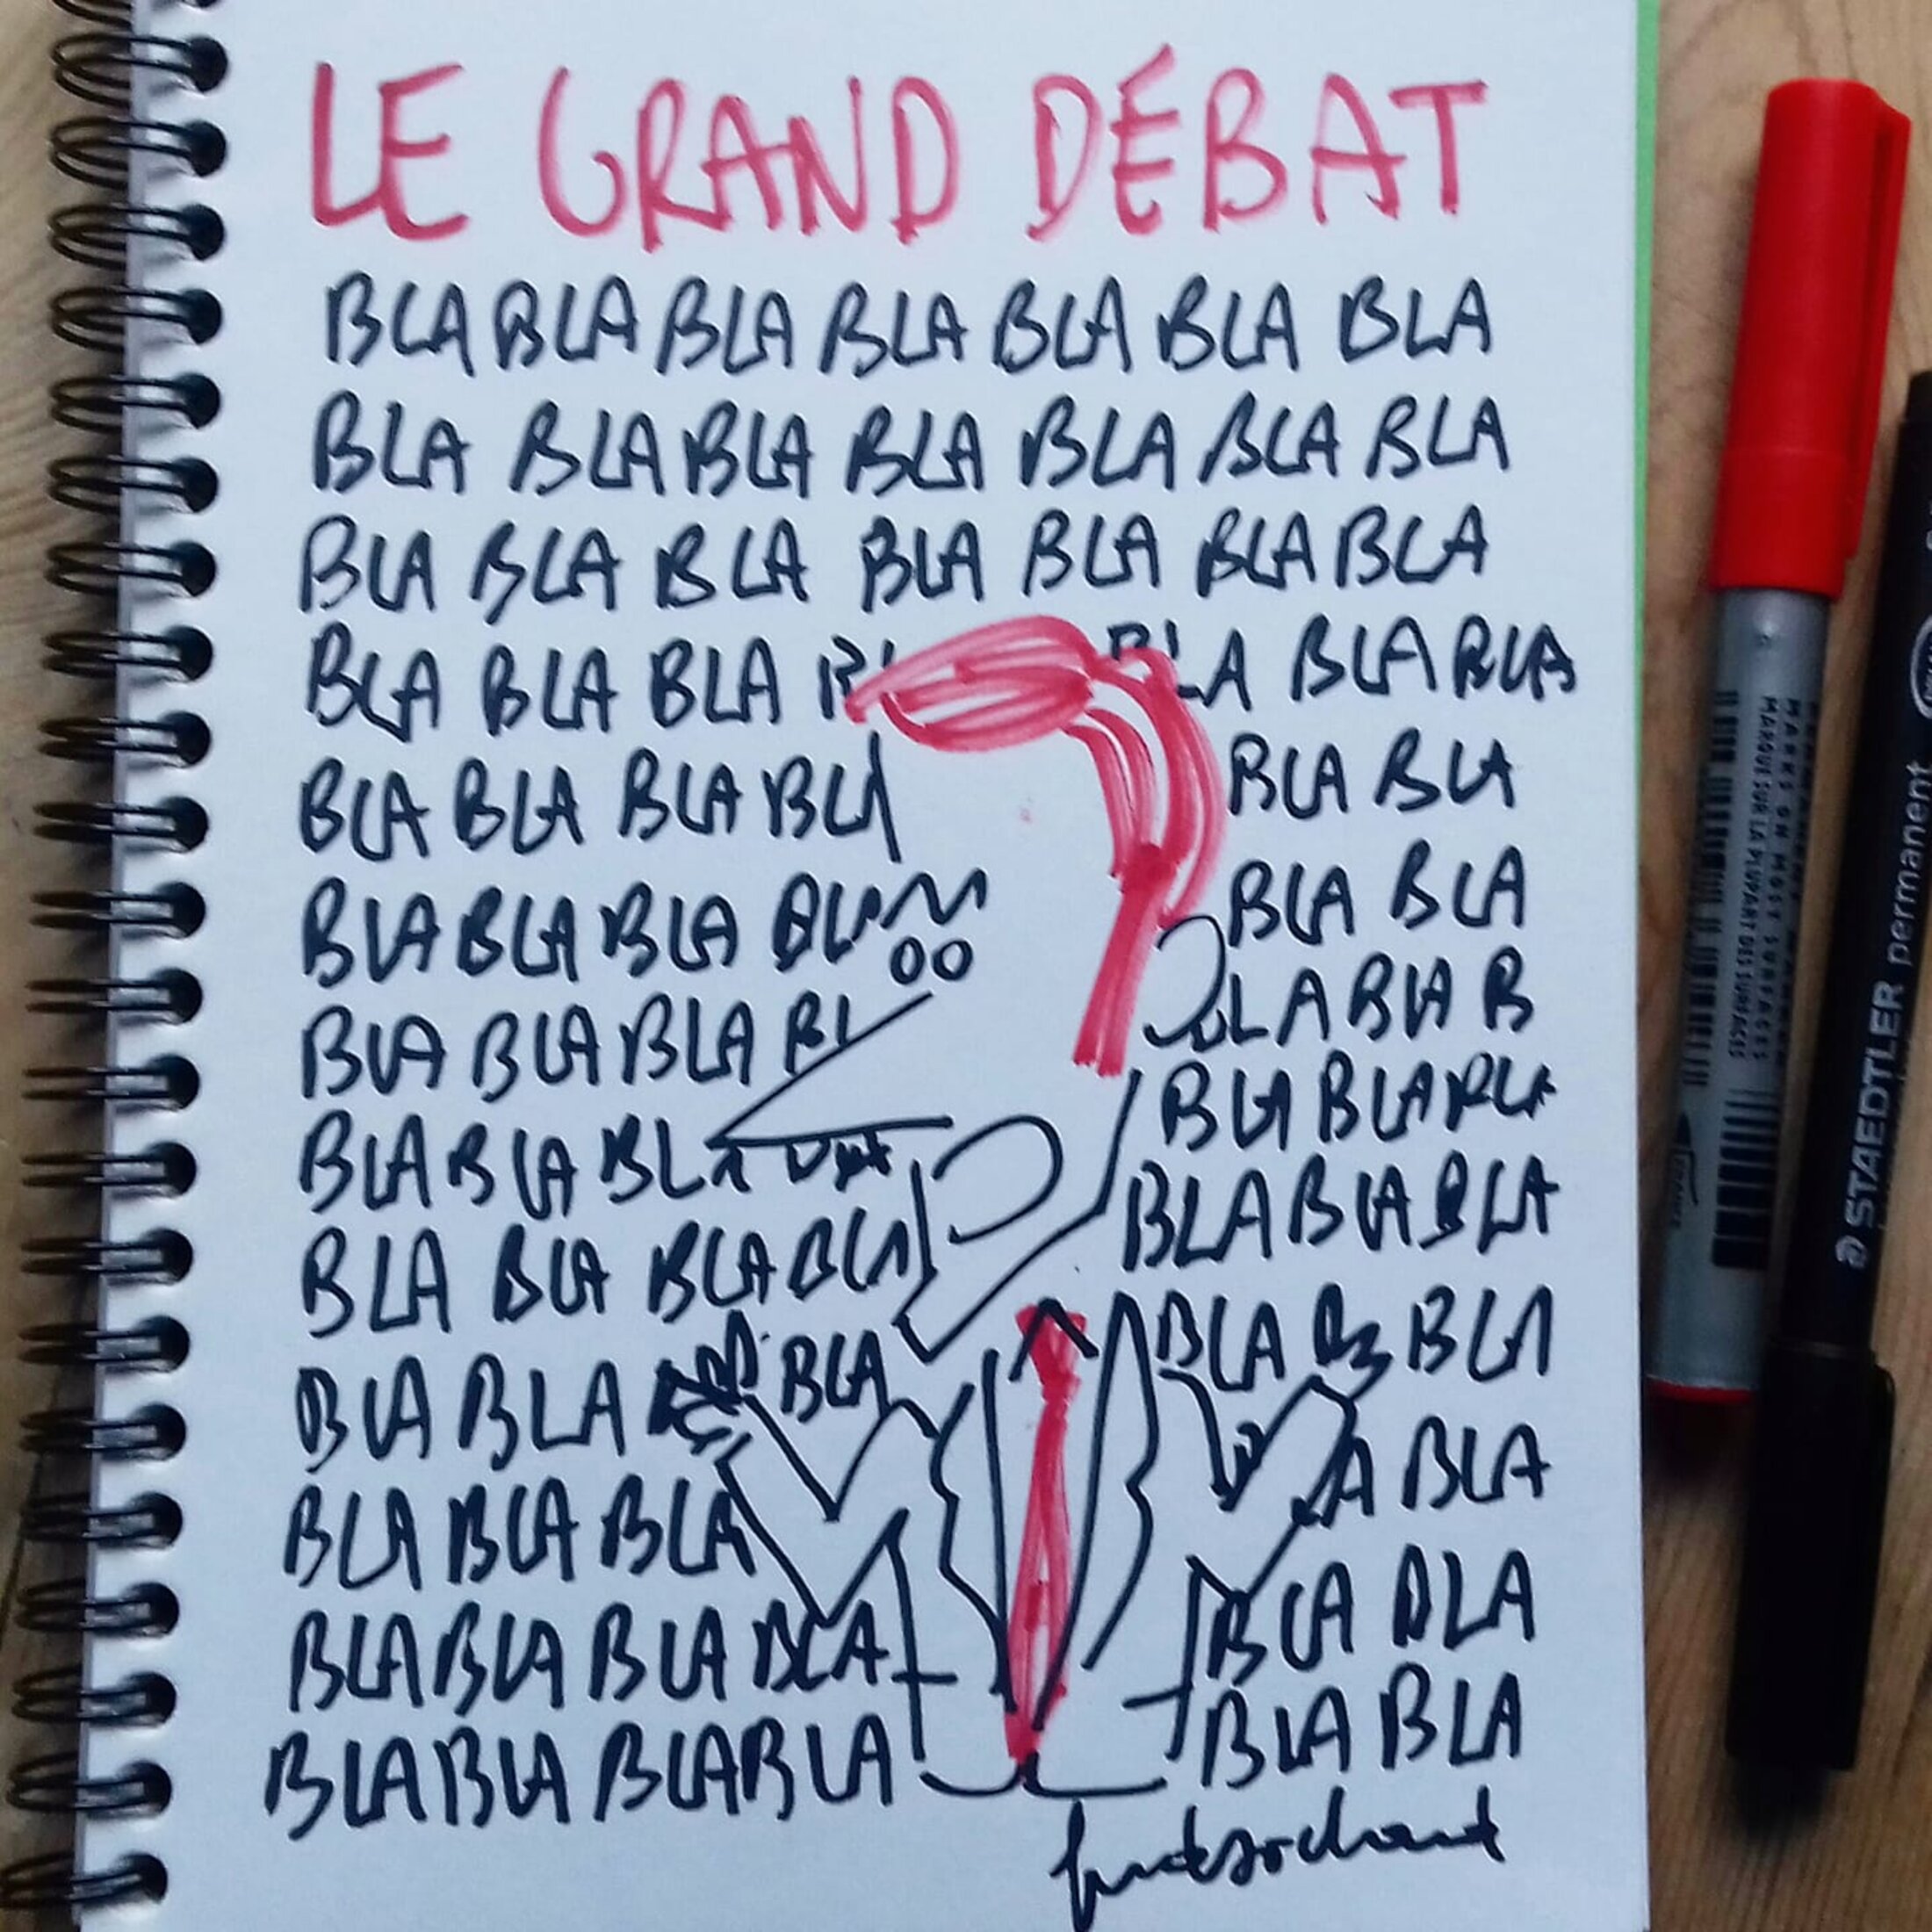 LE GRAND DÉBAT
BLA BLA BLA BLA BLA BLA BLA
BLA BLA BLA BLA BLA BLA BLA
BLA BLA BLA BLA BLA BLA BLA
BLA BLA BLA BLA BLA BLA
BLA BLA BLA BLA BLA BLA
BLA BLA BLA BLA BLA
BLA BLA BLA LA BLA B
BLA BLA BLA BLA BLA BLA
BLA BLA BLA BLA BLA BLA BLA
BLA BLA BLA BLA BLA
BLA BLA BLA A BLA
BLA BLA BLA BLA BLA BLA
BLA BLA BLA BLA BLA BLA
MARKS ON MOST SURFACES
MARQUE SUR LA PLUPART DES SURFACES
STAEDTLER permanent